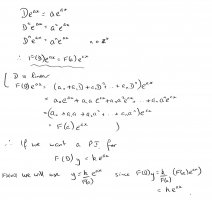 De^{ax} = ae^{ax}
D²e^{ax} = a²e^{ax}
Dⁿe^{ax} = aⁿe^{ax} n ∈ Z⁺
∴ F(D)e^{ax} = F(a)e^{ax}
[ D is linear
F(D)e^{ax} = (a₀ + a₁D + a₂D² ... + aₙDⁿ)e^{ax}
= a₀e^{ax} + a₁ae^{ax} + a₂a²e^{ax} ... + aₙaⁿe^{ax}
= (a₀ + a₁a + a₂a² ... + aₙaⁿ)e^{ax}
= F(a)e^{ax} ]
∴ If we want a PI for
F(D)y = ke^{ax}
we will use y = k/F(a) e^{ax} since F(D)y = k/F(a) (F(a)e^{ax})
= ke^{ax}